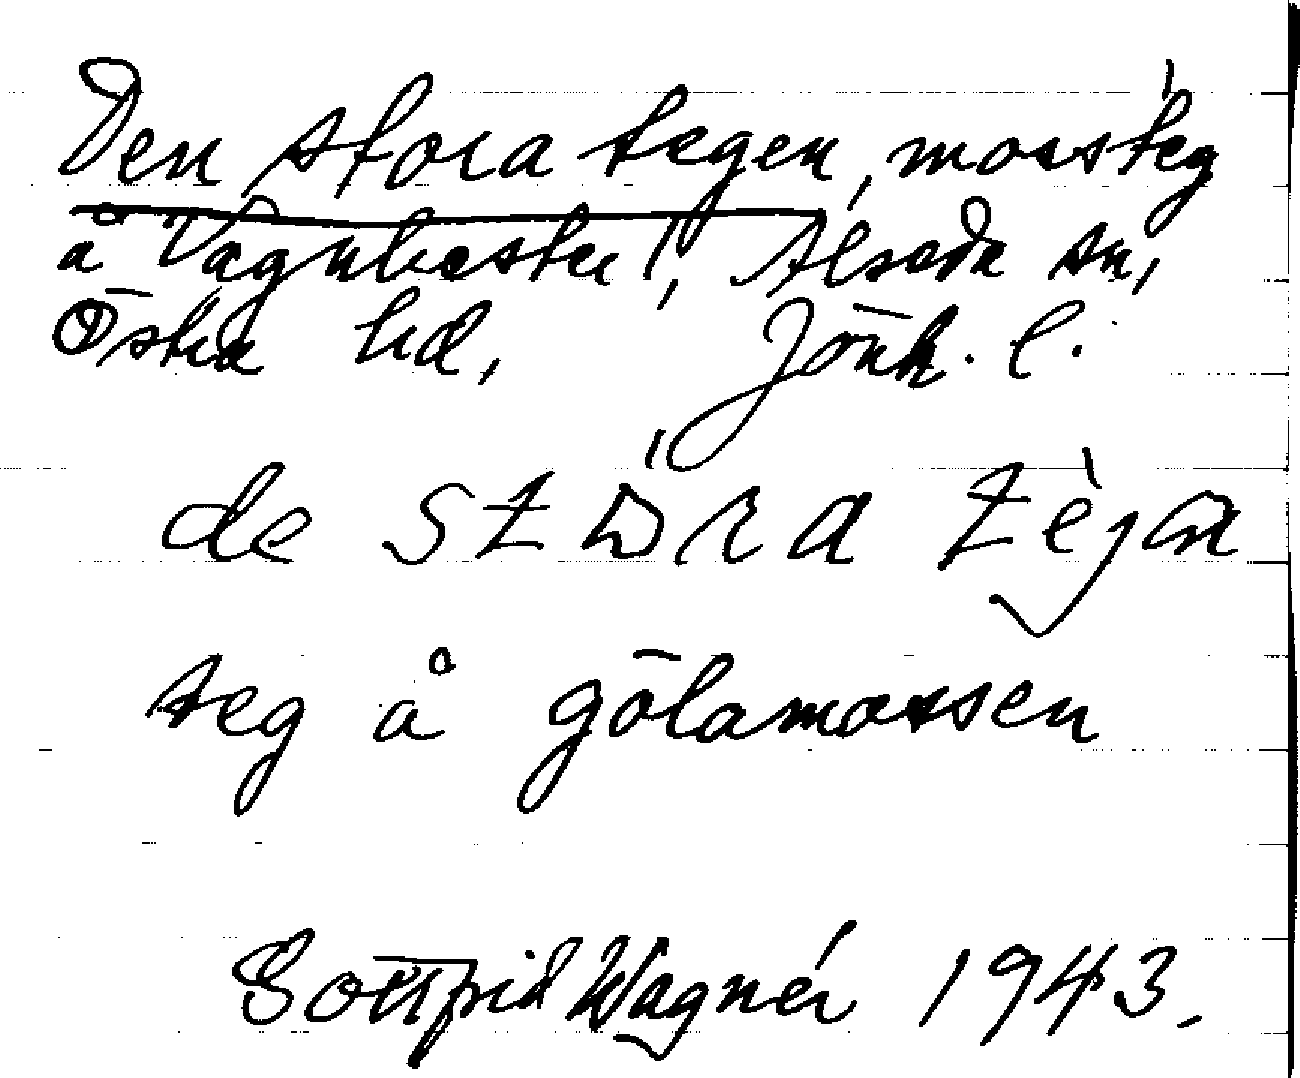 Den stora tegen, mossteg
å Vagnhester, Alseda sn,
Östra hd, Jönk. l.
de stωra tègan
teg å gölamossen
Gottfrid Wagnér 1943.